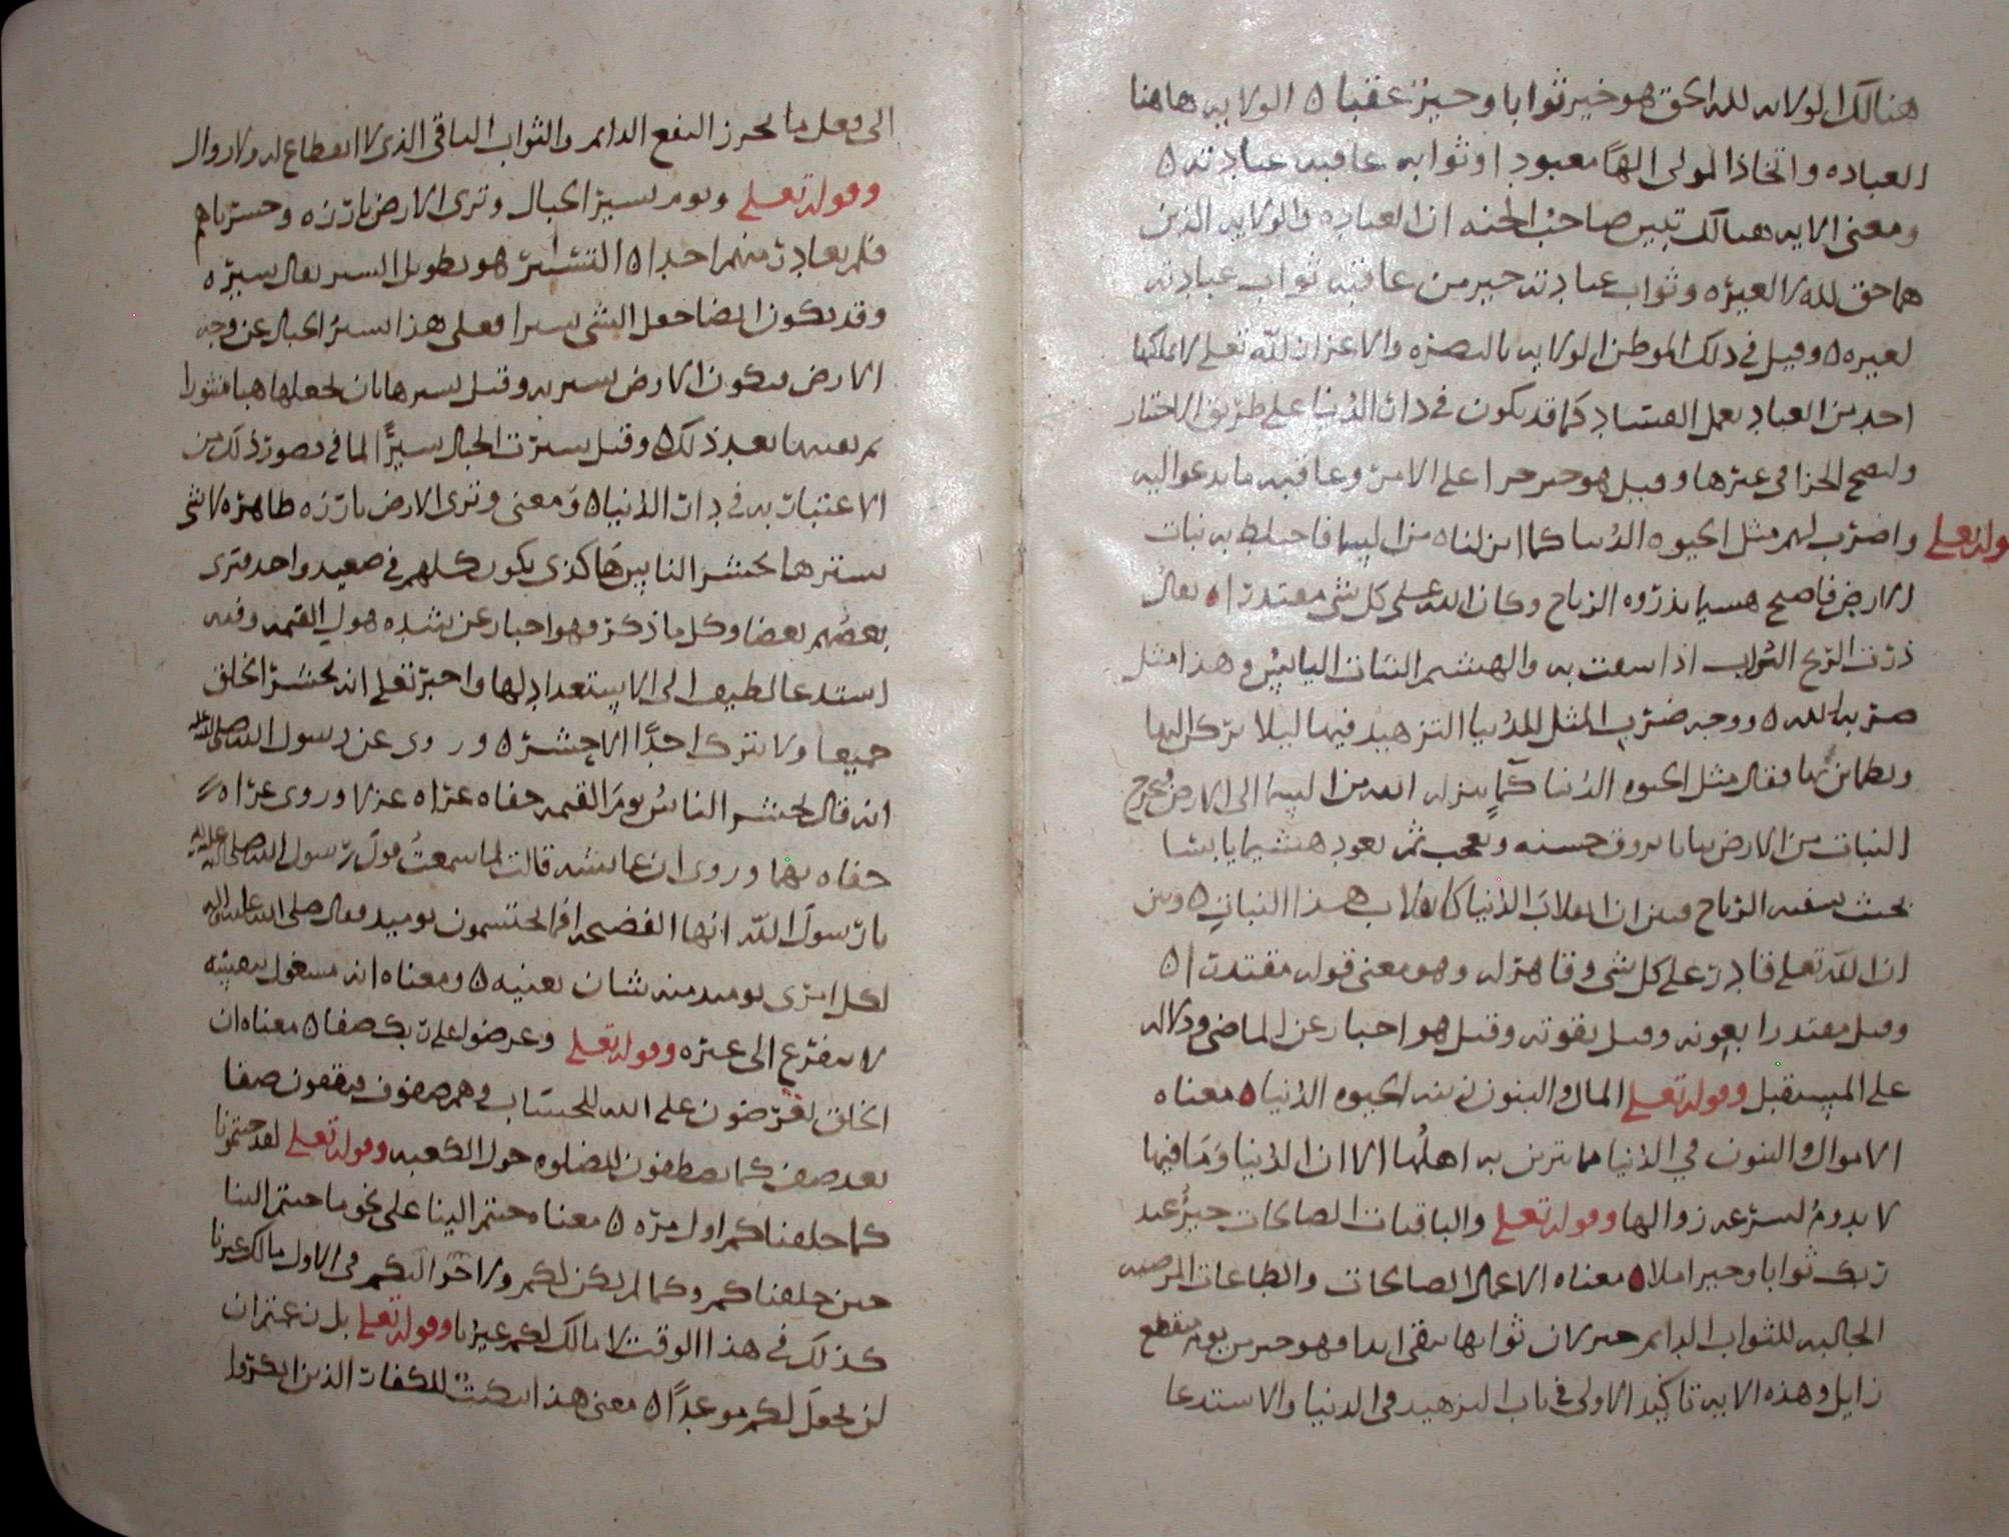 هنالك الولايه لله الحق هو خير ثوابا وخير عقبا ٥ الولايه هاهنا
العباده واتخاذ المولى الهًا معبودا وثوابه عاقبه عبادته ٥
ومعنى الايه هنالك تبين صاحب الجنه ان العباده والولايه الذين
هما حق لله لا لغيره وثواب عبادته خير من عاقبه ثواب عبادته
لغيره ٥ وقيل في ذلك الموطن الولايه بالنصره والاعزاز لله تعلى لا يملكها
احد من العباد بعمل الفساد كما قد يكون في دار الدُنيا على طريق الاختيار
ولصح الجزا في غيرها وقيل هو خير جزا على الامن وعاقبه ما يدعوا اليه
قوله تعلى واضرب لهم مثل الحيوه الدُنيا كما انزلناه من السما فاختلط به نبات
الارض فاصبح هشيما تذروه الرياح وكان الله على كل شى مقتدرا ٥ يقال
ذرت الريح التراب اذا سفت به والهشيم النبات اليابس وهذا مثل
ضربه الله ٥ ووجه ضرب المثل للدُنيا التزهيد فيها ليلا يركن اليها
ويطمان بها فقال مثل الحيوه الدُنيا كمآءٍ ينزله الله من السما الى الارض فيخرج
النبات من الارض نباتا يروق حسنه ويعجب ثم يعود هشيما يابسا
بحيث تسفيه الرياح فبين ان انقلاب الدُنيا كانقلاب هذا النبات ٥ وبين
ان الله تعلى قادر على كل شى وقاهر له وهو معنى قوله مقتدرا ٥
وقيل مقتدرا بعونه وقيل بقوته وقيل هو اخبار عن الماضى ودلاله
على المستقبل وقوله تعلى المال والبنون زينه الحيوه الدُنيا ٥ معناه
الاموال والبنون في الدُنيا مما يتزين به اهلُها الا ان الدُنيا وَمَا فيها
لا يدومُ لسرعه زوالها وقوله تعلى والباقيات الصالحات خيرٌ عند
ربك ثوابا وخير املا ٥ معناه الاعمال الصالحات والطاعات المرضيه
الجالبه للثواب الدايم خير لان ثوابها يبقى ابدا فهو خير من منقطع
زايل وهذه الايه تاكيد الاولى في باب التزهيد في الدنيا والاستدعا
الى فعل ما يحرز النفع الدايم والثواب الباقى الذى لا انقطاع له ولا زوال
وقوله تعلى ويوم نسير الجبال وترى الارض بارزه وحشرناهم
فلم نغادر منهم احدا ٥ التسيير هو تطويل السير يقال سيره
وقد يكون ايضا جعل الشى سيرا فعلى هذا تسير الجبال عن وجه
الارض فتكون الارض بسير به وقيل تسيرها بان يجعلها هبا منثورا
ثم يعيدها بعد ذلك ٥ وقيل سيرت الجبال سيرًا لما في تصور ذلك من
الاعتبار به في دار الدُنيا ٥ ومعنى وترى الارض بارزه ظاهره لا شى
يسترها يحشر الناس هاكذى يكون كلهم في صعيد واحد فترى
بعضُهم بعضا وكل ما ذكر فهو اخبار عن شده هول القيمه وفيه
استدعا لطيف الى الاستعداد لها واخبر تعلى انه يحشر الخلق
جميعا ولا يترك احدًا الا حشره ٥ وروى عن رسول الله صلى الله عليه
انه قال يحشر الناسُ يومَ القيمه حفاه عراه عزلا وروى عراه
حفاه بهما وروى ان عايشه قالت لما سمعتُ قولَ رسول الله صلى الله عليه واله
يا رسولَ الله انها الفضيحه افما يحتشمون يوميد فقال صلى الله عليه واله
لكل امرى يوميد منه شان يغنيه ٥ ومعناه انه مشغول بنفسه
لا يتفرغ الى غيره وقوله تعلى وعرضوا على ربك صفا ٥ معناه ان
الخلق يعرضون على الله للحساب وهم صفوف فيقفون صفا
بعد صف كما يصطفون للصلوه حول الكعبه وقوله تعلى لقد جئتمونا
كما خلقناكم اول مره ٥ معناه جئتم الينا على نحو ما جئتم الينا
حين خلقناكم وكما لم يكن لكم ولا في الاول مالك غيرنا
كذلك في هذا الوقت لا مالك لكم غيرنا وقوله تعلى بل زعمتم ان
لن نجعلَ لكم موعدًا ٥ معنى هذا التبكيتُ للكفار الذين انكروا